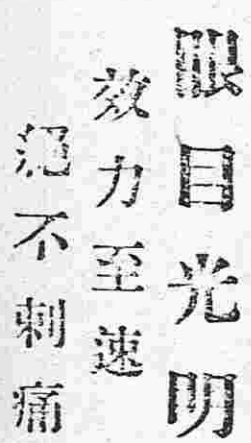 眼目光明
效力至速
絕不刺痛